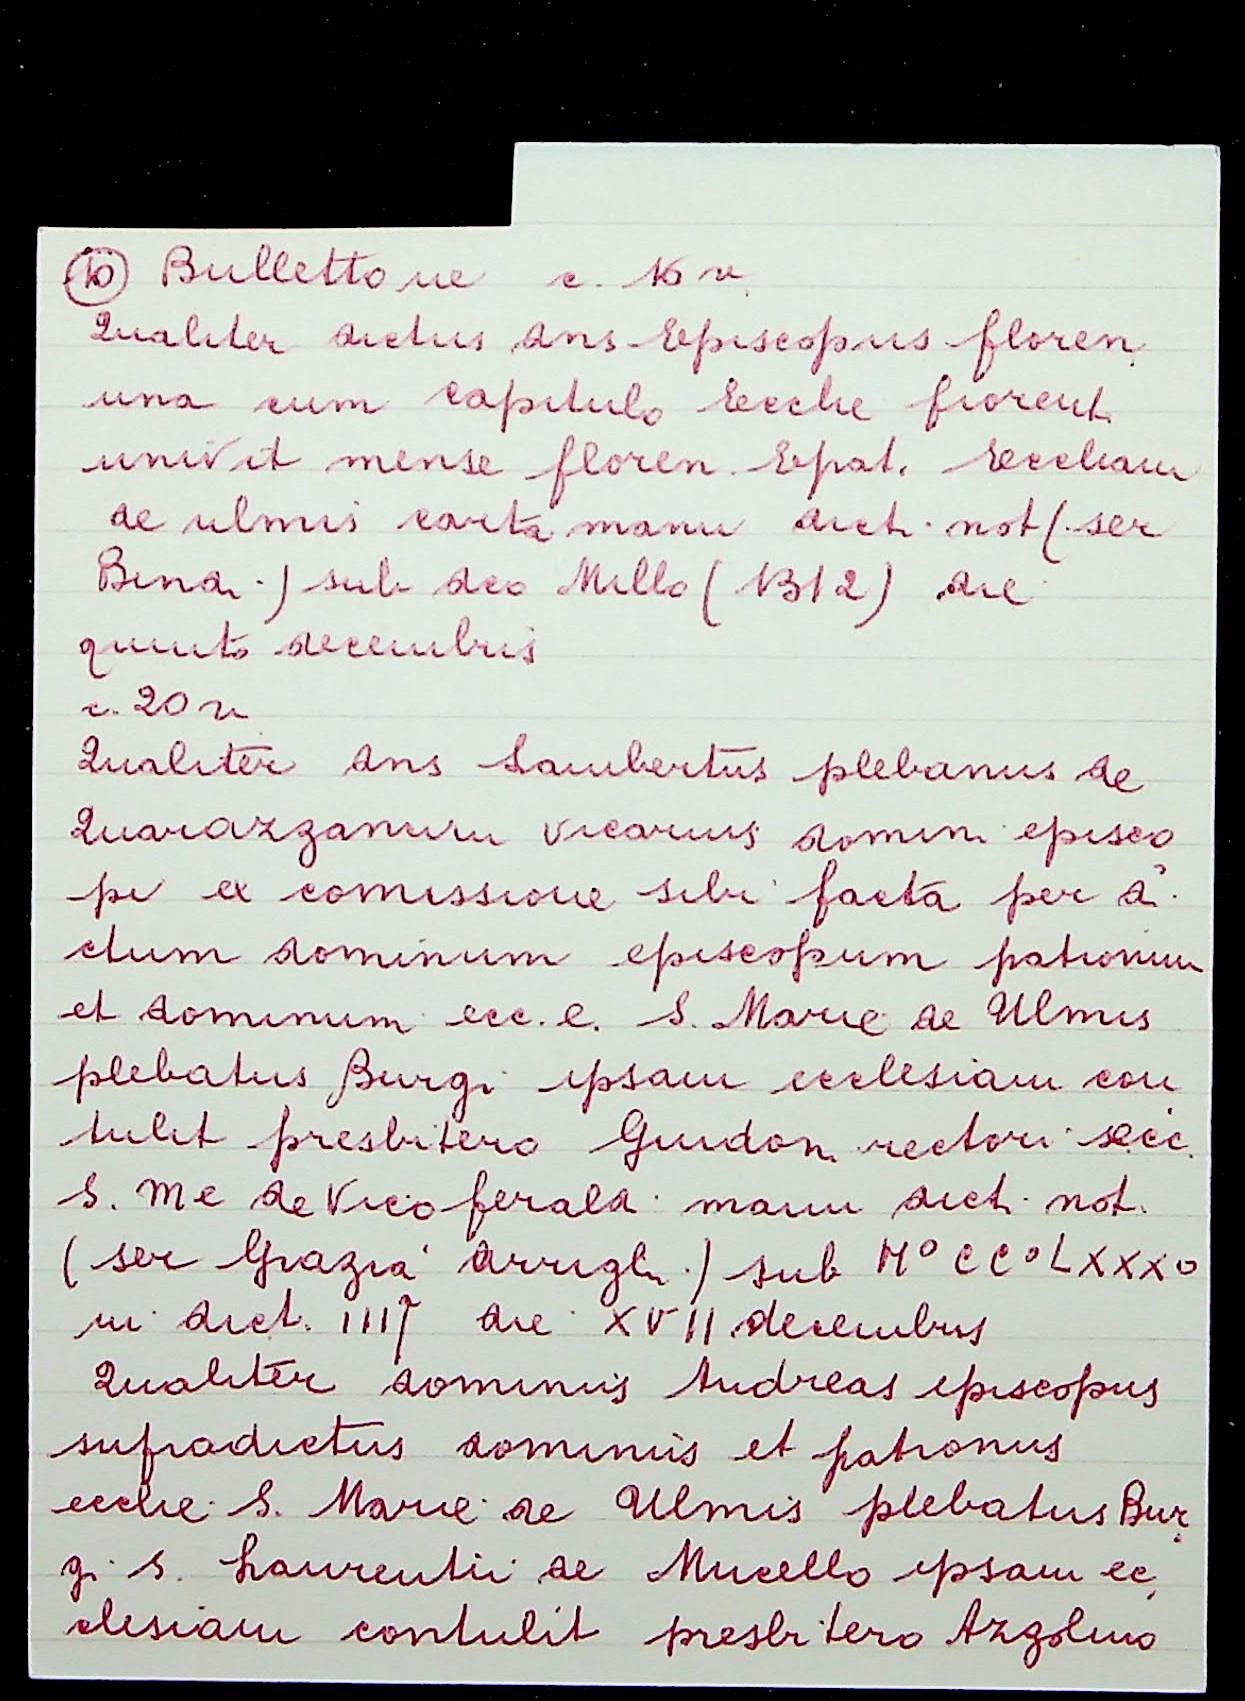 10 Bullettone c. 16 v.
Qualiter dictus dns Episcopus floren.
una cum capitulo Eccłie fiorent.
univit mense floren. Epat. Eccliam
de ulmis carta manu dict. not (ser
Bind.) sub dco Millo (1312) die
quinto decembris
c. 20 v
Qualiter dns Lambertus plebanus de
Quarazzanum vicarius domini episco
pi ex comissione sibi facta per di
ctum dominum episcopum patronum
et dominum ecc. e. S. Marie de Ulmis
plebatus Burgi ipsam ecclesiam con
tulit presbitero Guidon. rectori
S. Me de Vico ferald. manu dict. not.
(ser Grazia Arrigh.) sub M° CC° LXXX°
in dict. IIII die XVII decembris
Qualiter dominus Andreas episcopus
sufradictus dominus et patronus
ecclie S. Marie de Ulmis plebatus Bur
gi S. Laurentii de Mucello ipsam ec
clesiam contulit presbitero Azzolino